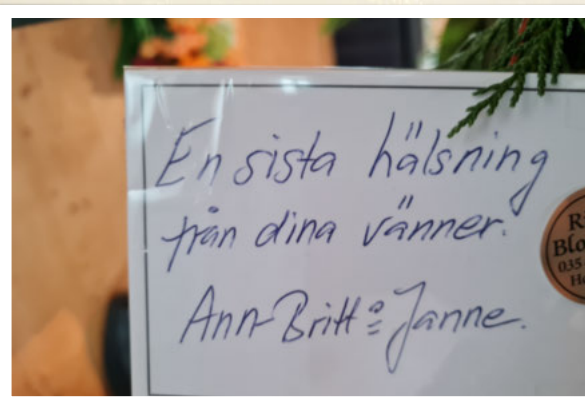 En sista hälsning
från dina vänner.
Ann-Britt & Janne.
035